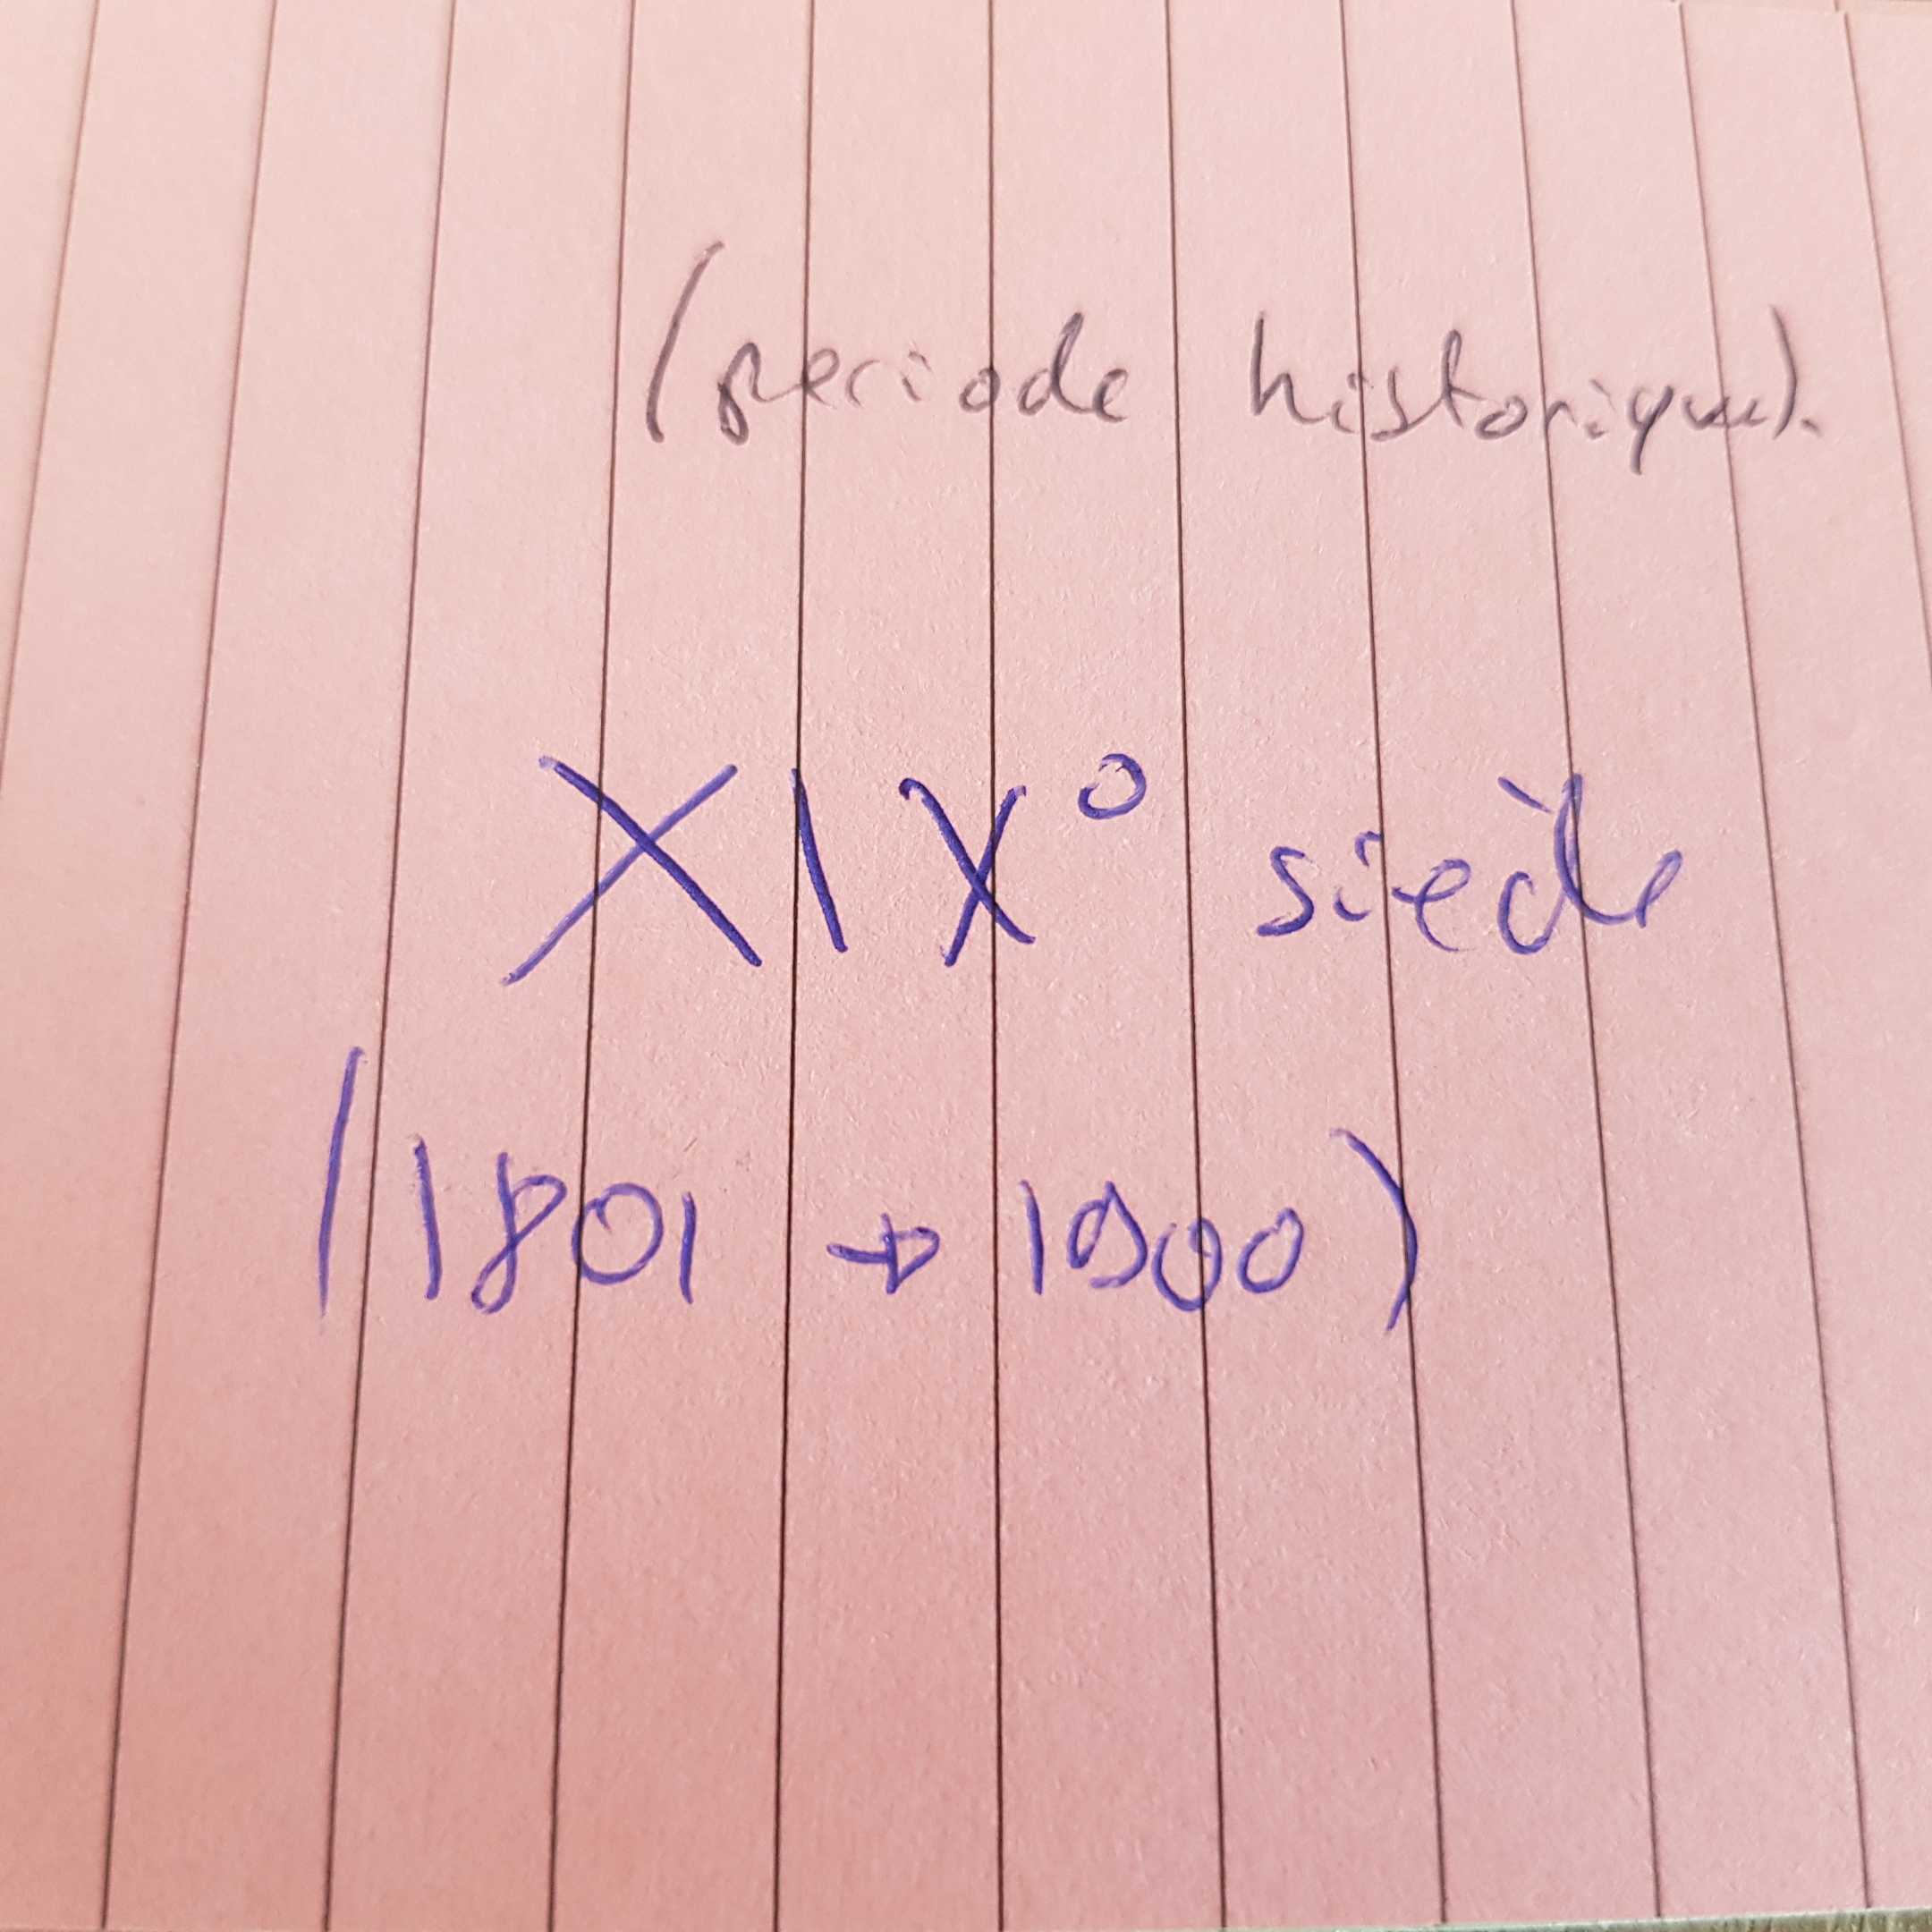 (periode historique).
XIX° siècle
(1801 → 1900)